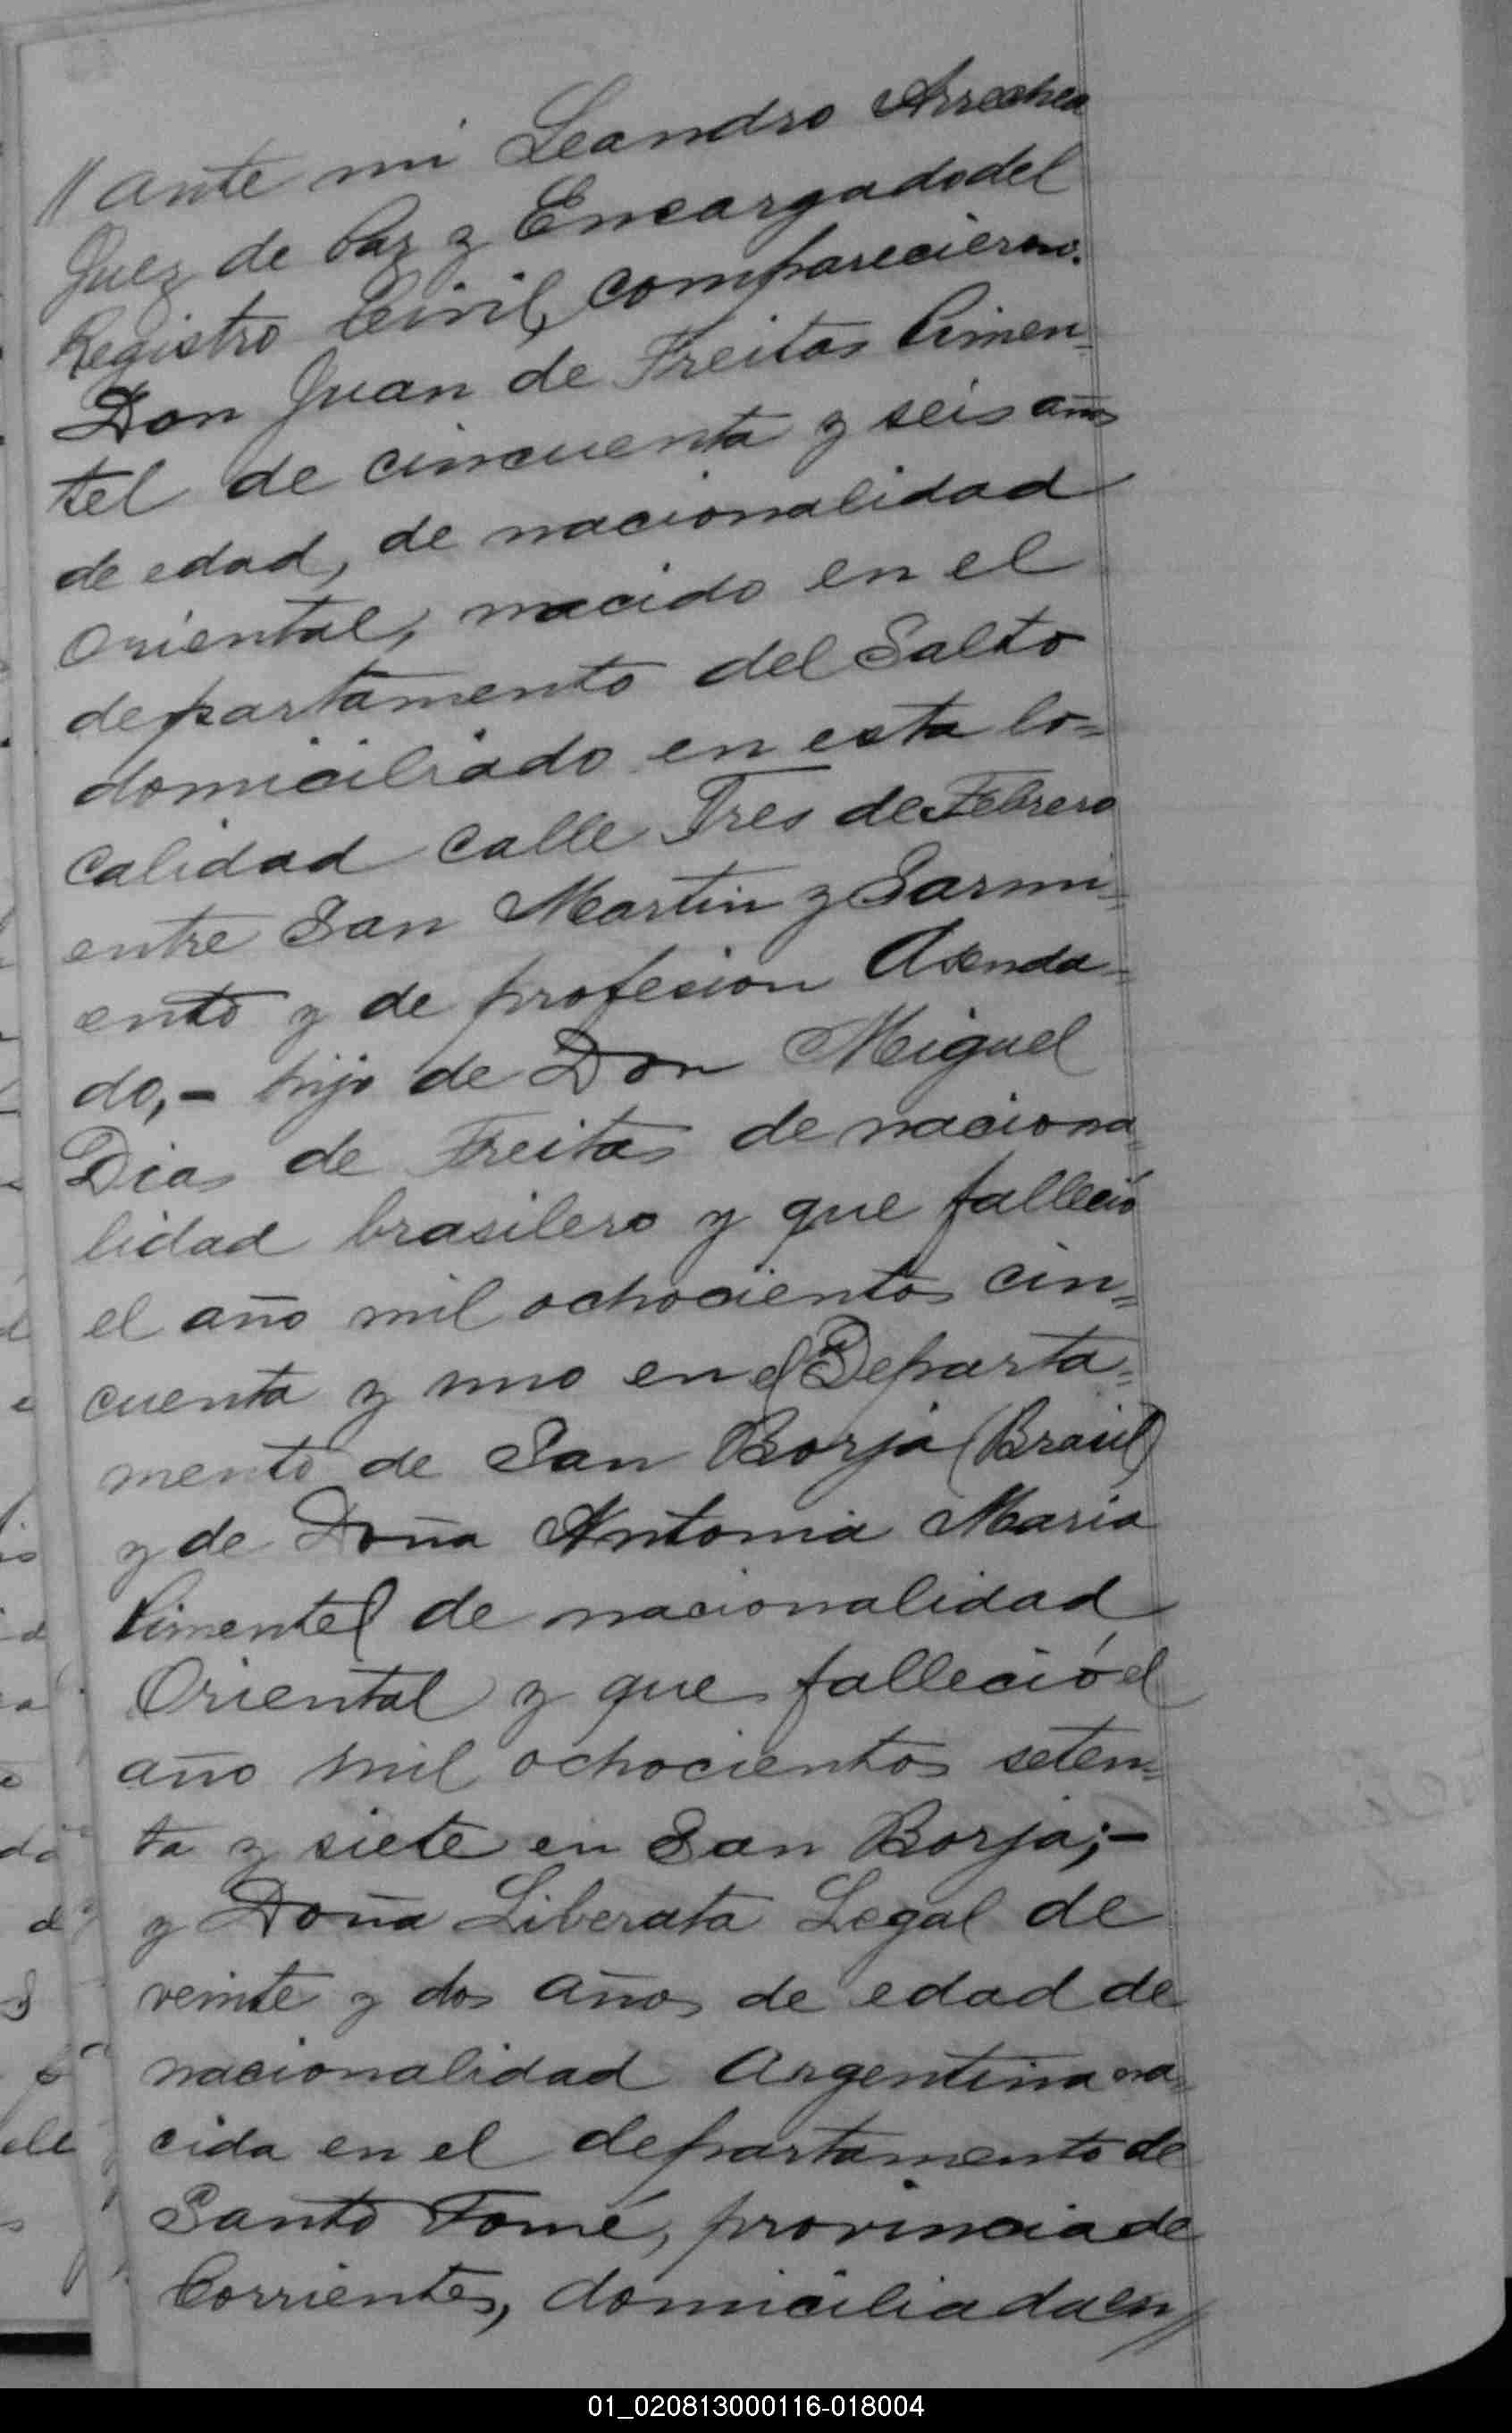 // ante mi Leandro Arrechea
Juez de Paz y Encargado del
Registro Civil, comparecieron.
Don Juan de Freitas Pimen=
tel de cincuenta y seis años
de edad, de nacionalidad
Oriental, nacido en el
departamento del Salto
domiciliado en esta lo=
calidad calle Tres de Febrero
entre San Martin y Sarmi=
ento y de profesion Asenda=
do,- hijo de Don Miguel
Dias de Freitas de naciona=
lidad brasilero y que falleció
el año mil ochocientos cin=
cuenta y uno en el Departa=
mento de San Borja (Brasil)
y de Doña Antonia Maria
Pimentel de nacionalidad
Oriental y que falleció el
año mil ochocientos seten=
ta y siete en San Borja;-
y Doña Liberata Legal de
veinte y dos años de edad de
nacionalidad Argentina na=
cida en el departamento de
Santo Tomé, provincia de
Corrientes, domiciliada en//
01_020813000116-018004